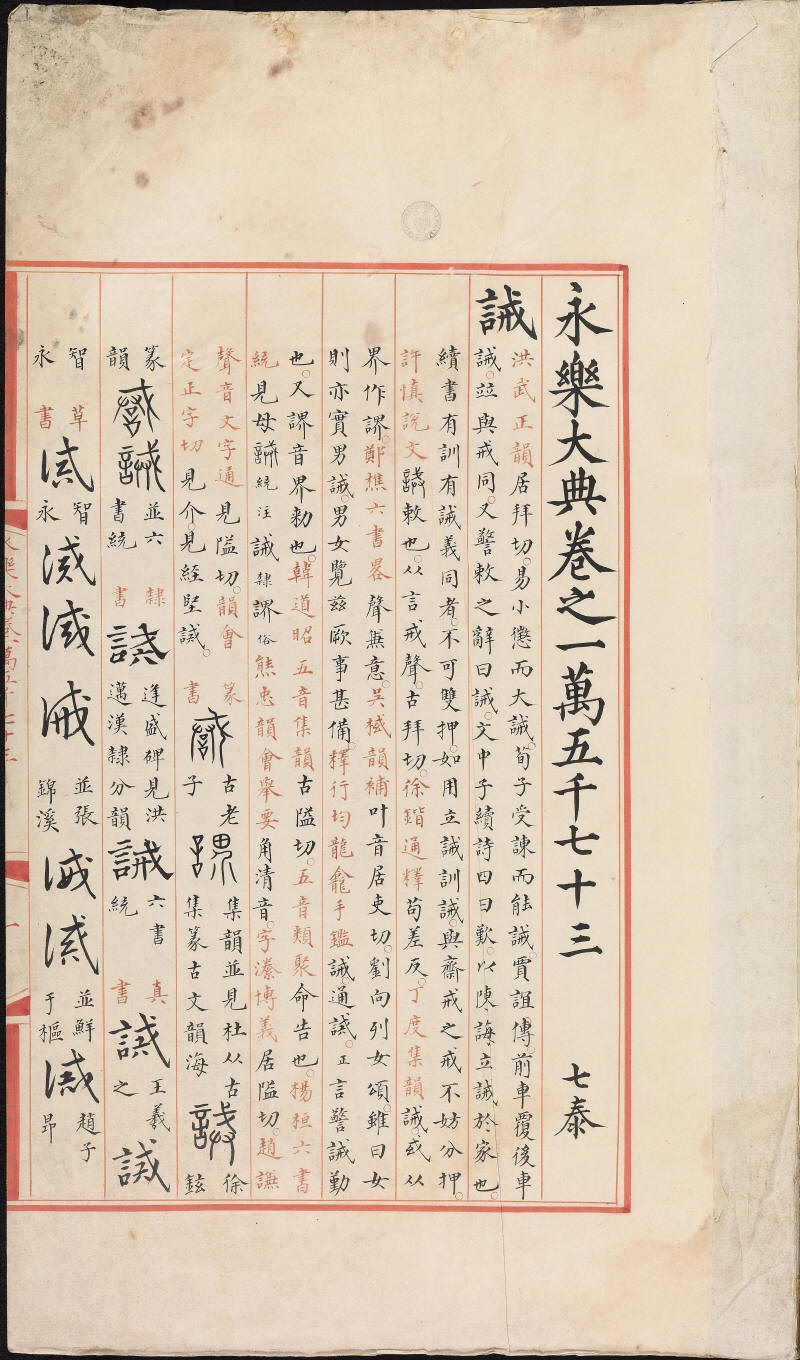 永樂大典卷之一萬五千七十三 七泰
誡 洪武正韻居拜切。易小懲而大誡。荀子受諫而能誡。賈誼傳。前車覆後車
誡。竝與戒同。又警敕之辭曰誡。文中子續詩四曰歎。以陳誨立誡於家也。
續書有訓有誡義同者。不可雙押。如用立誡訓誡。與齋戒之戒不妨分押。
許慎說文誡敕也。从言戒聲。古拜切。徐鍇通釋苟差反。丁度集韻誡。或从
界作䛺。鄭樵六書畧聲兼意。吳棫韻補叶音居吏切。劉向列女頌。雖曰女
則亦實男誡。男女覽兹厥事甚備。釋行均龍龕手鑑誡。通諴。正言警誡勤
也。又䛺音界勑也。韓道昭五音集韻古隘切。五音類聚命告也。楊桓六書
統見母誡統注誡隸䛺俗熊忠韻會舉要角清音。字潫博義居隘切。趙謙
聲音文字通見隘切。韻會
定正字切見介。見經堅誡。
篆書 古老子 集韻並見杜从古集篆古文韻海 徐鉉
篆韻 誡 並六書統 隸書 誡 逢盛碑見洪邁漢隸分韻 誡 六書統 真書 誡 王羲之 誡
智永 草書 誡 智永 誡 誡 誡 並張錦溪 誡 誡 並鮮于樞 誡 趙子昂